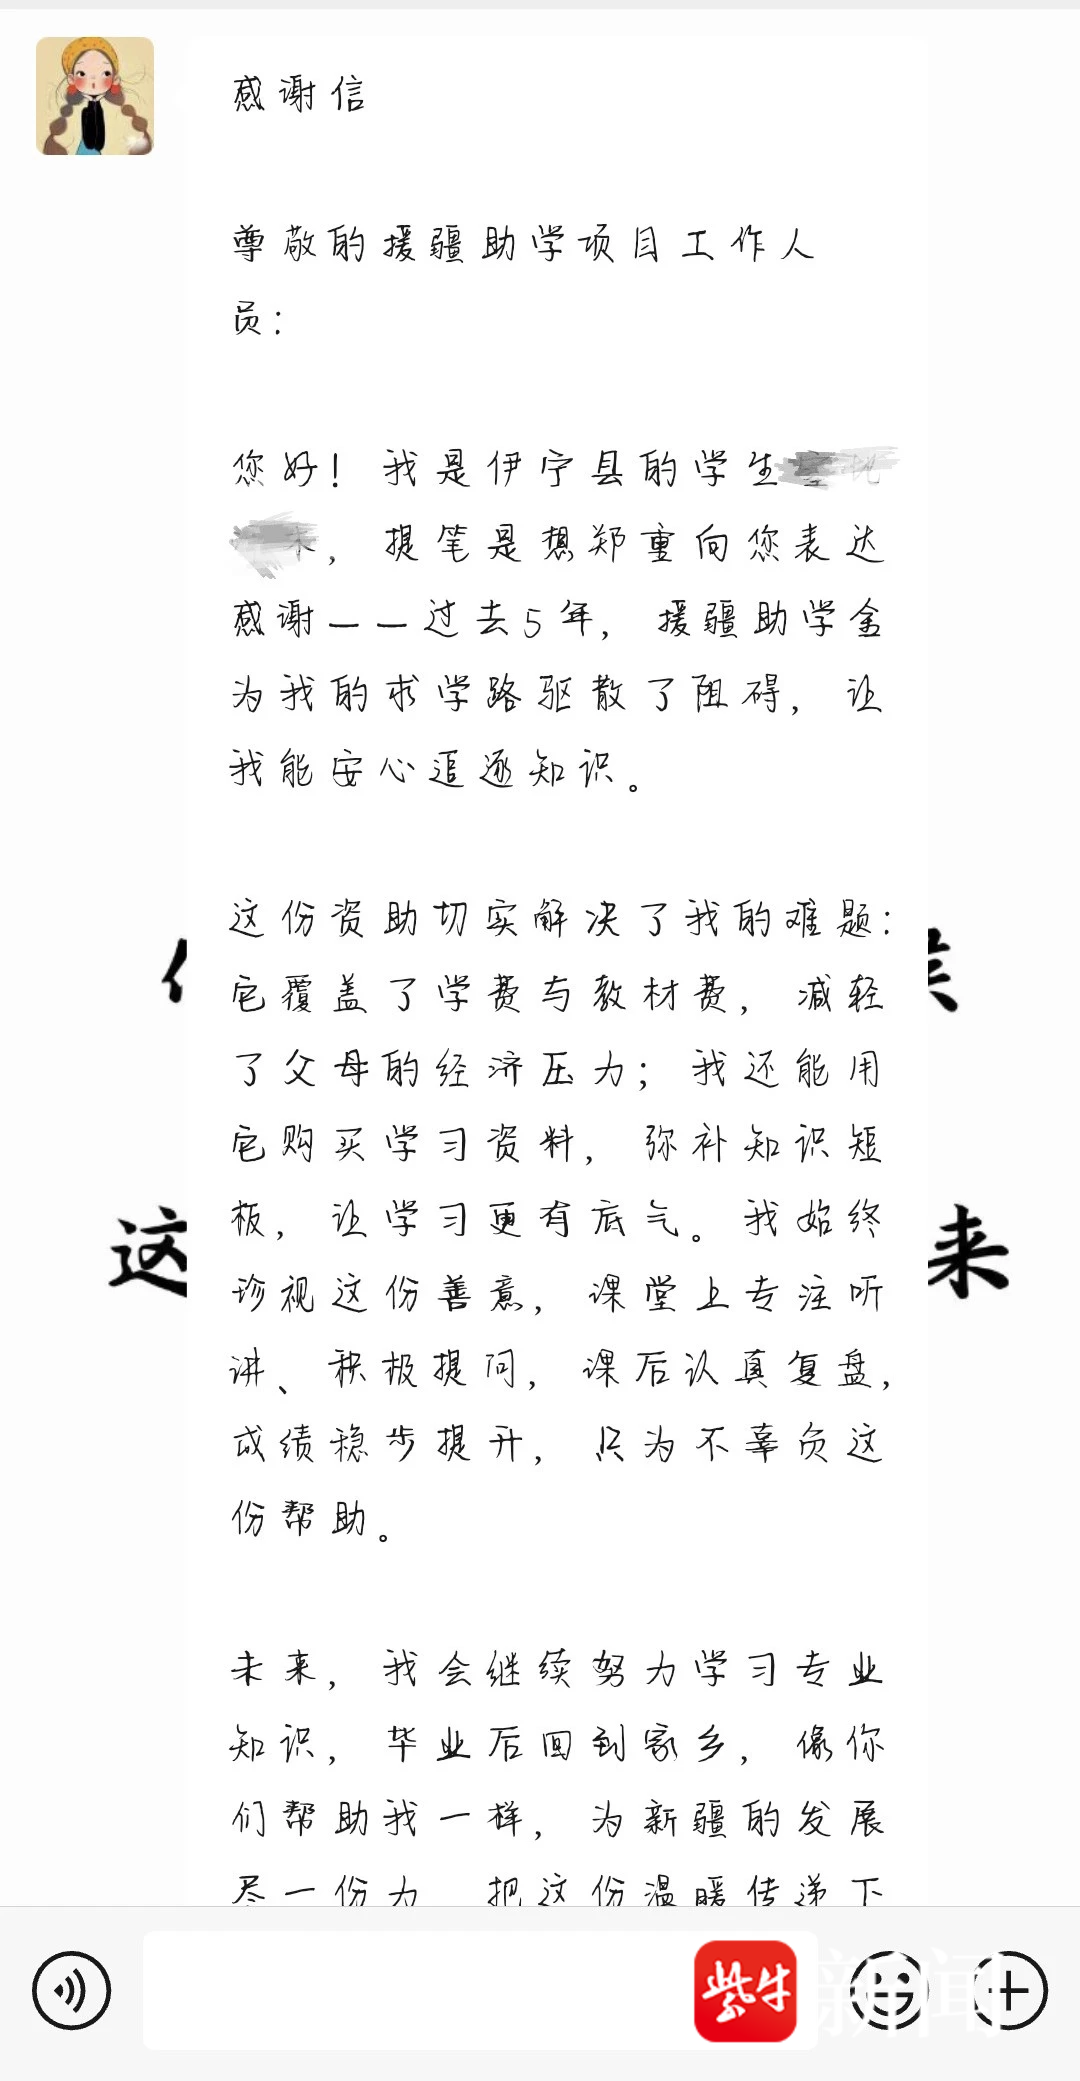 感谢信
尊敬的援疆助学项目工作人
员：
您好！我是伊宁县的学生
，提笔是想郑重向您表达
感谢——过去5年，援疆助学金
为我的求学路驱散了阻碍，让
我能安心追逐知识。
这份资助切实解决了我的难题：
它覆盖了学费与教材费，减轻
了父母的经济压力；我还能用
它购买学习资料，弥补知识短
板，让学习更有底气。我始终
珍视这份善意，课堂上专注听
讲、积极提问，课后认真复盘，
成绩稳步提升，只为不辜负这
份帮助。
这
来
未来，我会继续努力学习专业
知识，毕业后回到家乡，像你
们帮助我一样，为新疆的发展
尽一份力 把这份温暖传递下
紫牛新闻